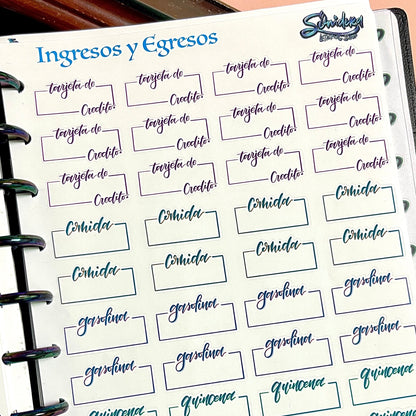 Ingresos y Egresos
tarjeta de tarjeta de tarjeta de tarjeta de
Credito Credito Credito Credito
tarjeta de tarjeta de tarjeta de tarjeta de
Credito Credito Credito Credito
tarjeta de tarjeta de tarjeta de tarjeta de
Credito Credito Credito Credito
Comida Comida Comida Comida
Comida Comida Comida Comida
gasolina gasolina gasolina gasolina
gasolina gasolina gasolina gasolina
quincena quincena quincena quincena